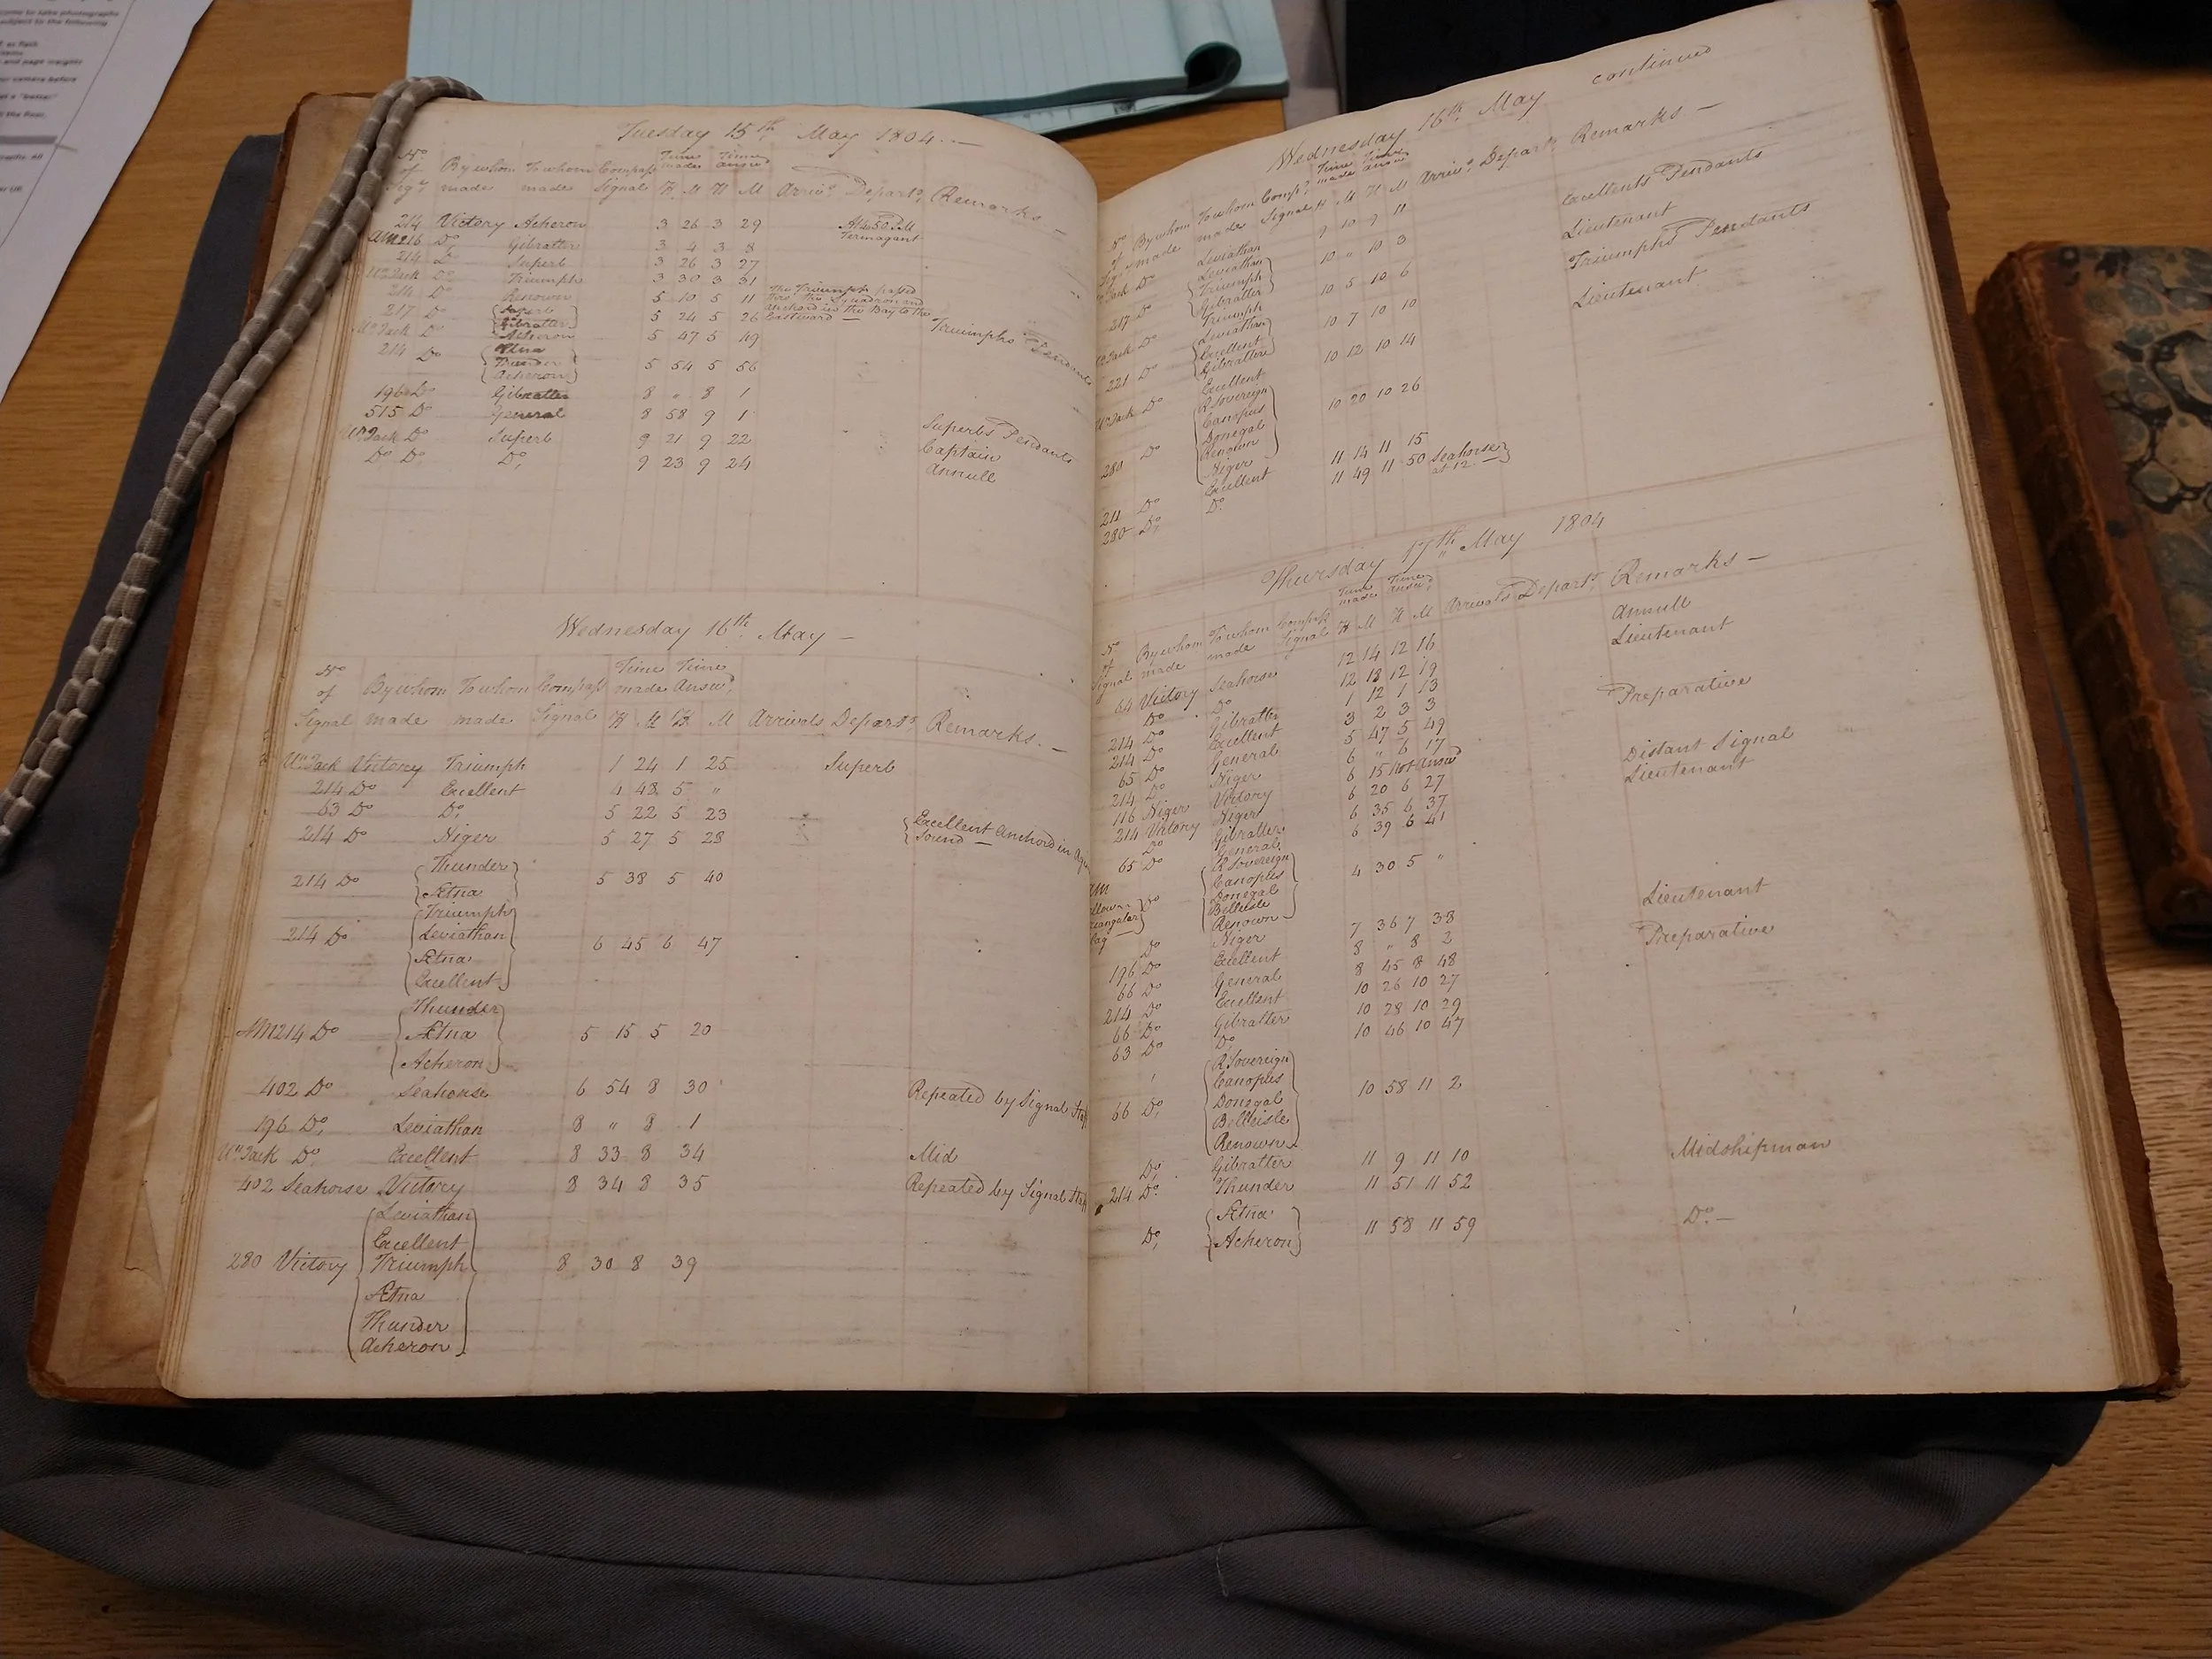 come to take photographs
subject to the following
and page weights
your camera before
the floor.
Tuesday 15th May 1804.—
No of Sigl By whom made To whom made Compass Signal Time made H M Time answd H M Arrivs Departs Remarks —
214 Victory Acheron 3 26 3 29 At 4.50 PM Termagant
AM 216 Do Gibralter 3 4 3 8
214 Do Superb 3 26 3 27
Un Jack Do Triumph 3 30 3 31
214 Do Renown 5 10 5 11 The Triumph passed thro' the Squadron and Anchord in the Bay to the Eastward —
217 Do {Superb Gibralter} 5 24 5 26
Un Jack Do Acheron 5 47 5 49 Triumphs Pendants
214 Do {Etna Thunder Acheron} 5 54 5 56
196 Do Gibralter 8 " 8 1
515 Do General 8 58 9 1
Un Jack Do Superb 9 21 9 22 Superbs Pendants Captain
Do Do Do 9 23 9 24 Annull
Wednesday 16th May —
No of Signal By whom made To whom made Compass Signal Time made H M Time Answd H M Arrivals Departs Remarks. —
Un Jack Victory Triumph 1 24 1 25 Superb
214 Do Excellent 4 48 5 "
63 Do Do 5 22 5 23
214 Do Niger 5 27 5 28 {Excellent Anchord in Sound —
214 Do {Thunder Ætna} 5 38 5 40
214 Do {Triumph Leviathan Ætna Excellent} 6 45 6 47
AM 214 Do {Thunder Ætna Acheron} 5 15 5 20
402 Do Seahorse 6 54 8 30 Repeated by Signal Staff
196 Do Leviathan 8 " 8 1
Un Jack Do Excellent 8 33 8 34 Mid
402 Seahorse Victory 8 34 8 35 Repeated by Signal Staff
280 Victory {Leviathan Excellent Triumph Ætna Thunder Acheron} 8 30 8 39
Wednesday 16th May continued
No of Sig By whom made To whom made Comps Signal Time made H M Time answ H M Arrivs Departs Remarks —
Jack Do Leviathan 9 10 9 11 Excellents Pendants Lieutenant
217 Do {Leviathan Triumph Gibralter} 10 " 10 3
Un Jack Do Triumph 10 5 10 6 Triumphs Pendants Lieutenant
221 Do {Leviathan Excellent Gibralter} 10 7 10 10
Un Jack Do Excellent 10 12 10 14
280 Do {R Sovereign Canopus Donegal Renown Niger} 10 20 10 26
211 Do Excellent 11 14 11 15
280 Do Do 11 49 11 50 Seahorse at 12 —}
Thursday 17th May 1804
No of Signal By whom made To whom made Compss Signal Time made H M Time answd H M Arrivals Departs Remarks —
64 Victory Seahorse 12 14 12 16 Annull
Do Do 12 18 12 19 Lieutenant
214 Do Gibralter 1 12 1 13
214 Do Excellent 3 2 3 3
65 Do General 5 47 5 49 Preparative
214 Do Niger 6 " 6 17
116 Niger Victory 6 15 Not Answd Distant Signal
214 Victory Niger 6 20 6 27 Lieutenant
Do Gibralter 6 35 6 37
65 Do General 6 39 6 41
AM Triangular Flag Do {R Sovereign Canopus Donegal Billeisle Renown} 4 30 5 "
Do Niger 7 36 7 38 Lieutenant
196 Do Excellent 8 " 8 2
66 Do General 8 45 8 48 Preparative
214 Do Excellent 10 26 10 27
66 Do Gibralter 10 28 10 29
63 Do Do 10 46 10 47
66 Do {R Sovereign Canopus Donegal Billeisle Renown} 10 58 11 2
Do Gibralter 11 9 11 10
214 Do Thunder 11 51 11 52 Midshipman
Do {Ætna Acheron} 11 58 11 59 Do —